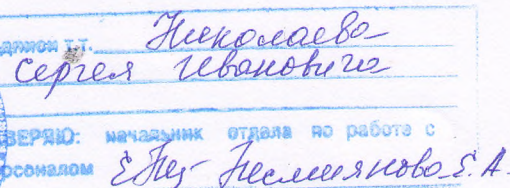 дписи т.т. Николаева
Сергея Ивановича
ВЕРЯЮ: начальник отдела по работе с
рсоналом Несмиянова Е.А.